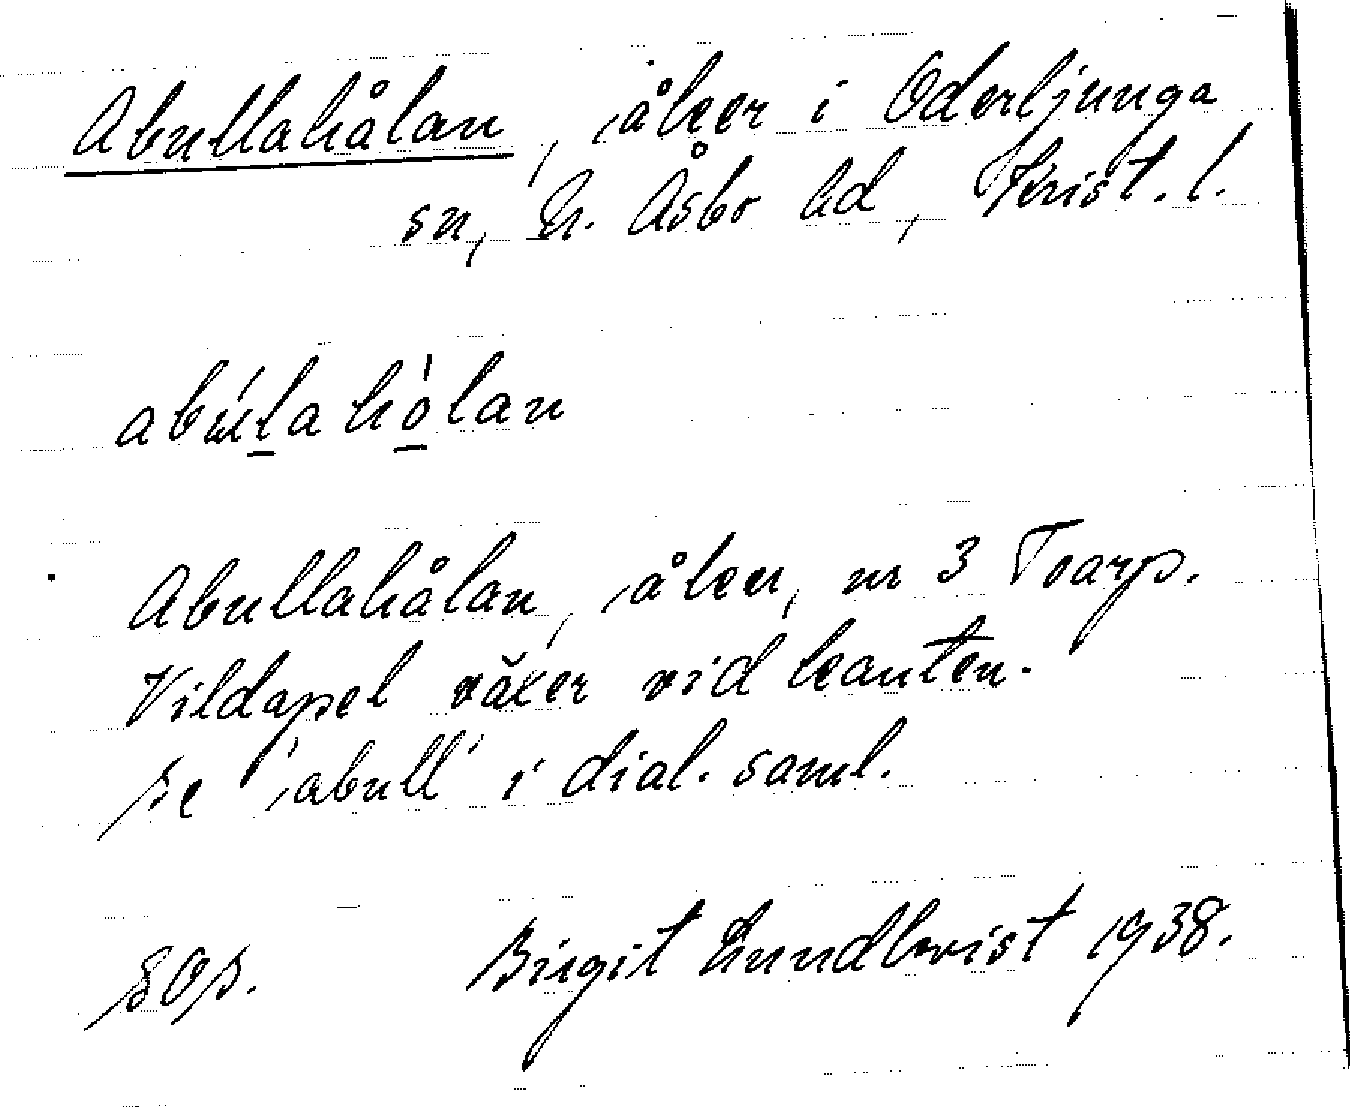 Abullahålan, åker i Oderljunga
sn, N. Åsbo hd, Krist. l.
abúl̠a hò̠lan
Abullahålan, åker, nr 3 Toarp.
Vildapel växer vid kanten.
Se 'abull' i dial. saml.
Birgit Lundkvist 1938.